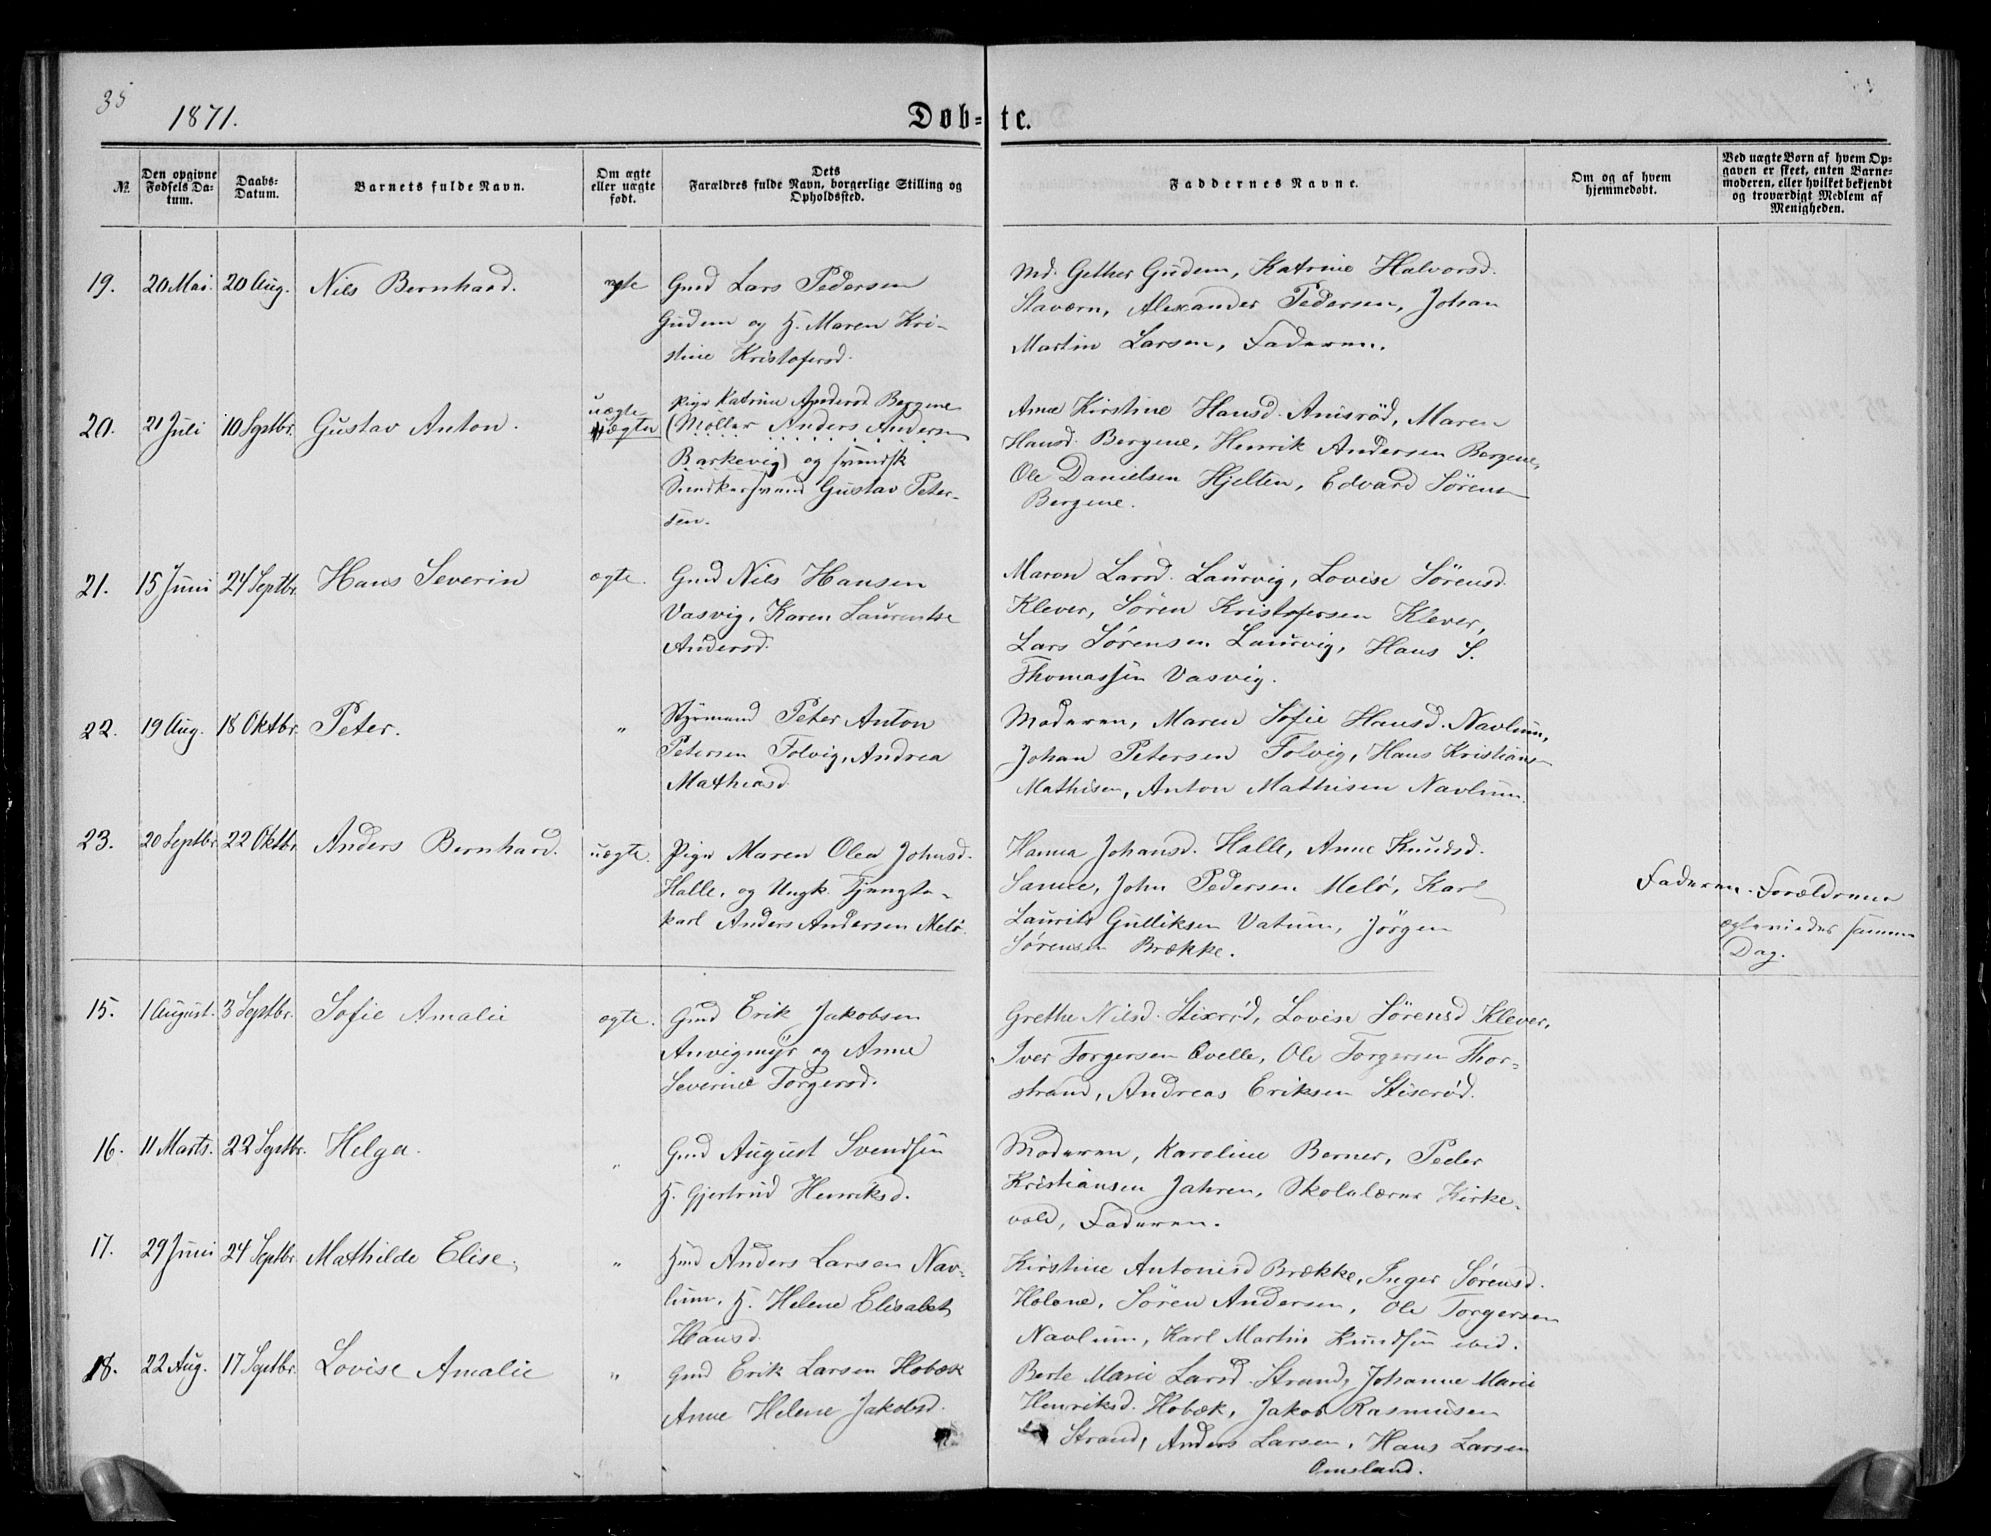 35
1871.
Døb-te.
№
Den opgivne Fødsels Datum.
Daabs-Datum.
Barnets fulde Navn.
Om ægte eller uægte født.
Dets Forældres fulde Navn, borgerlige Stilling og Opholdssted.
Faddernes Navne.
Om og af hvem hjemmedøbt.
Ved uægte Børn af hvem Opgaven er skeet, enten Barnemoderen, eller hvilket bekjendt og troværdigt Medlem af Menigheden.
19. 20 Mai. 20 Aug. Nils Bernhard. ægte
Gmd Lars Pedersen
Gudem og H. Maren Kri-
stine Kristofersd.
Md. Gether Gudem, Katrine Halvorsd.
Stavern, Alexander Pedersen, Johan
Martin Larsen, Faderen.
20. 21 Juli 10 Septbr. Gustav Anton. uægte
Pige Katrine Andersd. Bergene
(Møller Anders Andersen
Barkevig) og svendsk
Gustav Peter-
sen.
Anne Kirstine Hansd. Anisrød, Maren
Hansd. Bergene, Henrik Andersen Bergene,
Ole Danielsen Hjelten, Edvard Sørensen
Bergene.
21. 15 Juni 24 Septbr. Hans Severin ægte.
Gmd Nils Hansen
Vasvig, Karen Laurentse
Andersd.
Maren Larsd. Laurvig, Lovise Sørensd.
Klever, Søren Kristofersen Klever,
Lars Sørensen Laurvig, Hans S.
Thomassen Vasvig.
22. 19 Aug. 18 Oktbr. Peter. "
Styrmand Peter Anton
Petersen Folvig, Andrea
Mathiasd.
Moderen, Maren Sofie Hansd. Navlum,
Johan Petersen Folvig, Hans Kristians
Mathisen, Anton Mathisen Navlum.
23. 20 Septbr. 22 Oktbr. Anders Bernhard. uægte.
Pige Maren Olea Johnsd.
Halle, og Ungk. Tjeneste-
karl Anders Andersen Melø.
Hanna Johansd. Halle, Anne Knudsd.
Sanne, John Pedersen Melø, Karl
Laurits Gulliksen Vatum, Jørgen
Sørensen Brække.
Faderen. Forældrene
ægteviedes samme
Dag.
15. 1 August. 3 Septbr. Sofie Amalie ægte.
Gmd Erik Jakobsen
Anvigmyr og Anne
Severine Torgersd.
Grethe Nilsd. Stixrød, Lovise Sørensd Klever,
Iver Torgersen Ovelle, Ole Torgersen Thor-
strand, Andreas Eriksen Stixrød.
16. 11 Marts. 22 Septbr. Helga. "
Gmd August Svendsen
H. Gjertrud Henriksd.
Moderen, Karoline Berner, Peder
Kristiansen Jahren, Skolelærer Kirke-
vold, Faderen.
17. 29 Juni 24 Septbr. Mathilde Elise. "
Hmd Anders Larsen Nav-
lum, H. Helene Elisabet
Hansd.
Kirstine Antonisd Brække, Inger Sørensd.
Holene, Søren Andersen, Ole Torgersen
Navlum, Karl Martin Knudsen ibid.
18. 22 Aug. 17 Septbr. Lovise Amalie "
Gmd Erik Larsen Hobæk
Anne Helene Jakobsd.
Berte Marie Larsd. Strand, Johanne Marie
Henriksd. Hobæk, Jakob Rasmusen
Strand, Anders Larsen, Hans Larsen
Omsland.